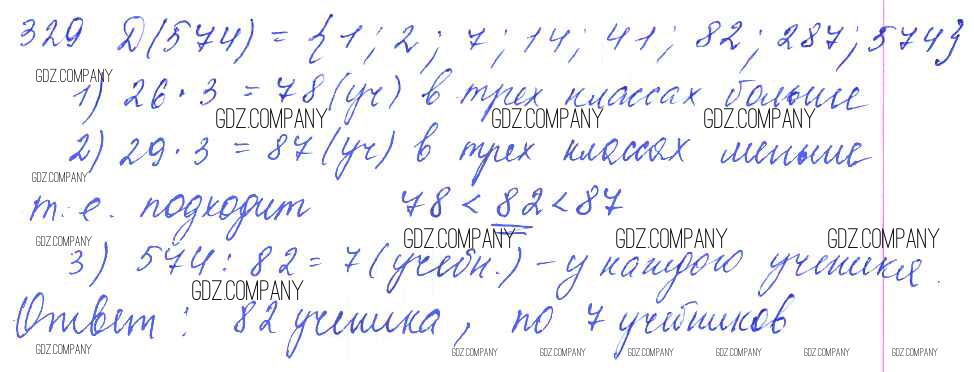 329 Д(574) = {1; 2; 7; 14; 41; 82; 287; 574}
GDZ.COMPANY
1) 26 · 3 = 78 (уч) в трех классах больше
GDZ.COMPANY GDZ.COMPANY GDZ.COMPANY
2) 29 · 3 = 87 (уч) в трех классах меньше
GDZ.COMPANY
т. е. подходит 78 < 82 < 87
GDZ.COMPANY GDZ.COMPANY GDZ.COMPANY GDZ.COMPANY
3) 574 : 82 = 7 (учебн.) - у каждого ученика.
GDZ.COMPANY
Ответ: 82 ученика, по 7 учебников
GDZ.COMPANY GDZ.COMPANY GDZ.COMPANY GDZ.COMPANY GDZ.COMPANY GDZ.COMPANY GDZ.COMPANY